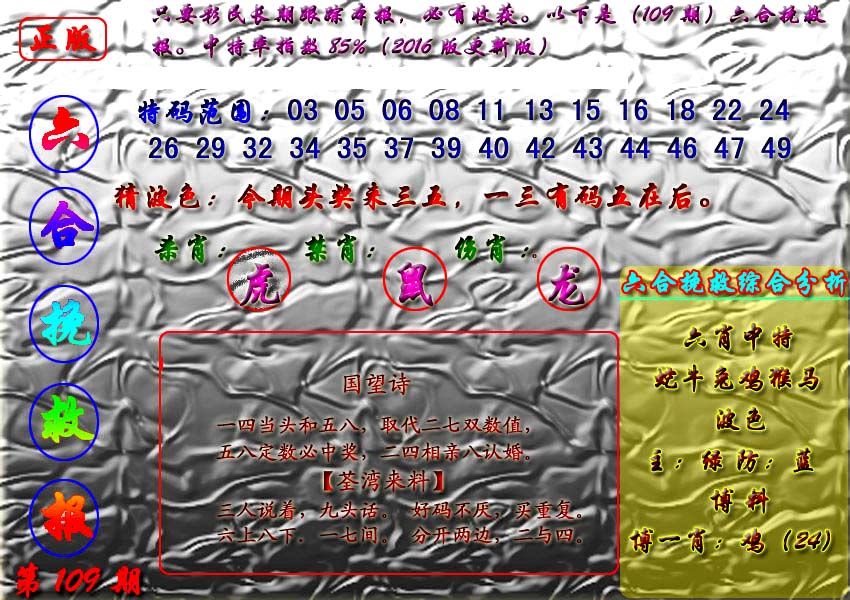 正版
只要彩民长期跟踪本报，必有收获。以下是（109期）六合挽救
报。中特率指数85%（2016版更新版）
六合挽救报
第109期
特码范围：03 05 06 08 11 13 15 16 18 22 24
26 29 32 34 35 37 39 40 42 43 44 46 47 49
猜波色：今期头奖来三五，一三有码五在后。
杀肖：虎 禁肖：鼠 伤肖：龙
国望诗
一四当头和五八，取代二七双数值，
五八定数必中奖，二四相亲八认婚。
【荃湾来料】
三人说着，九头话。 好码不厌，买重复。
六上八下．一七间。 分开两边，二与四。
六合挽救综合分析
六肖中特
蛇牛兔鸡猴马
波色
主：绿 防：蓝
博料
博一肖：鸡（24）